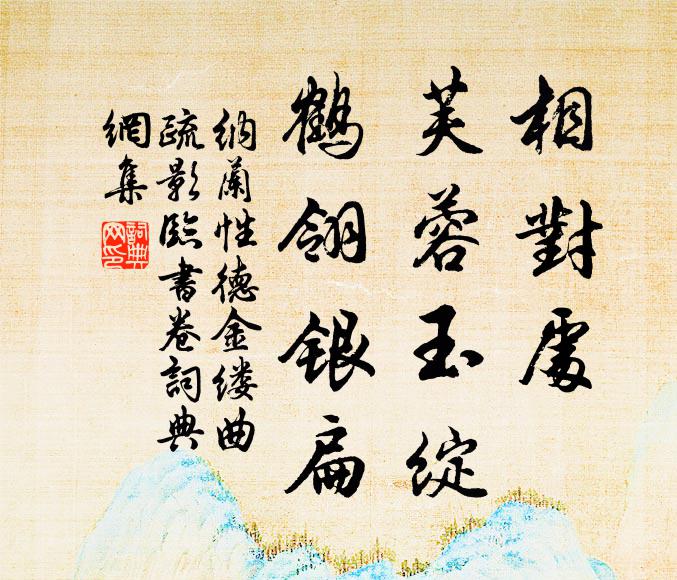 相對處
芙蓉玉綻
鶴翎銀扁
納蘭性德金缕曲
疏影臨書卷詞典
網集
詞典網印